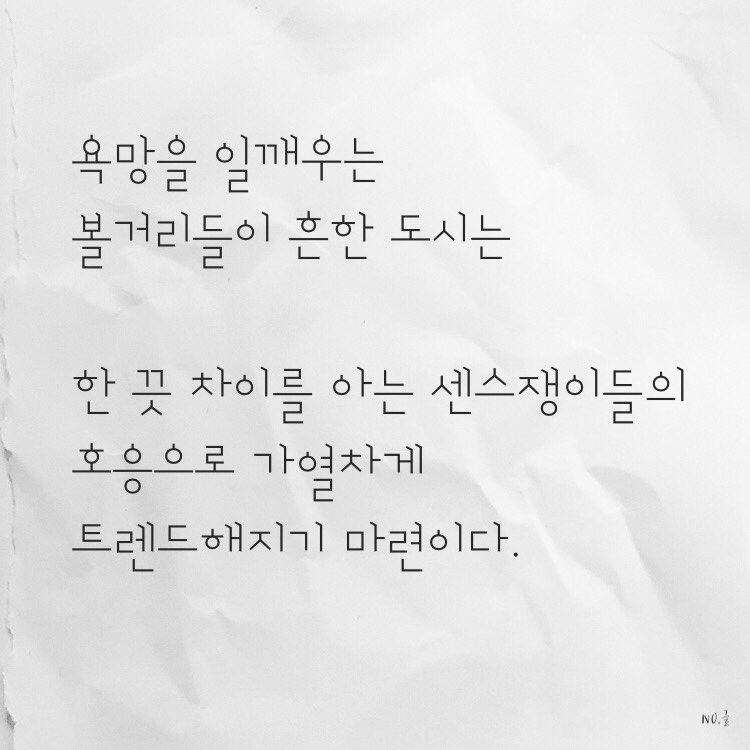 욕망을 일깨우는
볼거리들이 흔한 도시는
한 끗 차이를 아는 센스쟁이들의
호응으로 가열차게
트렌드해지기 마련이다.
NO.글